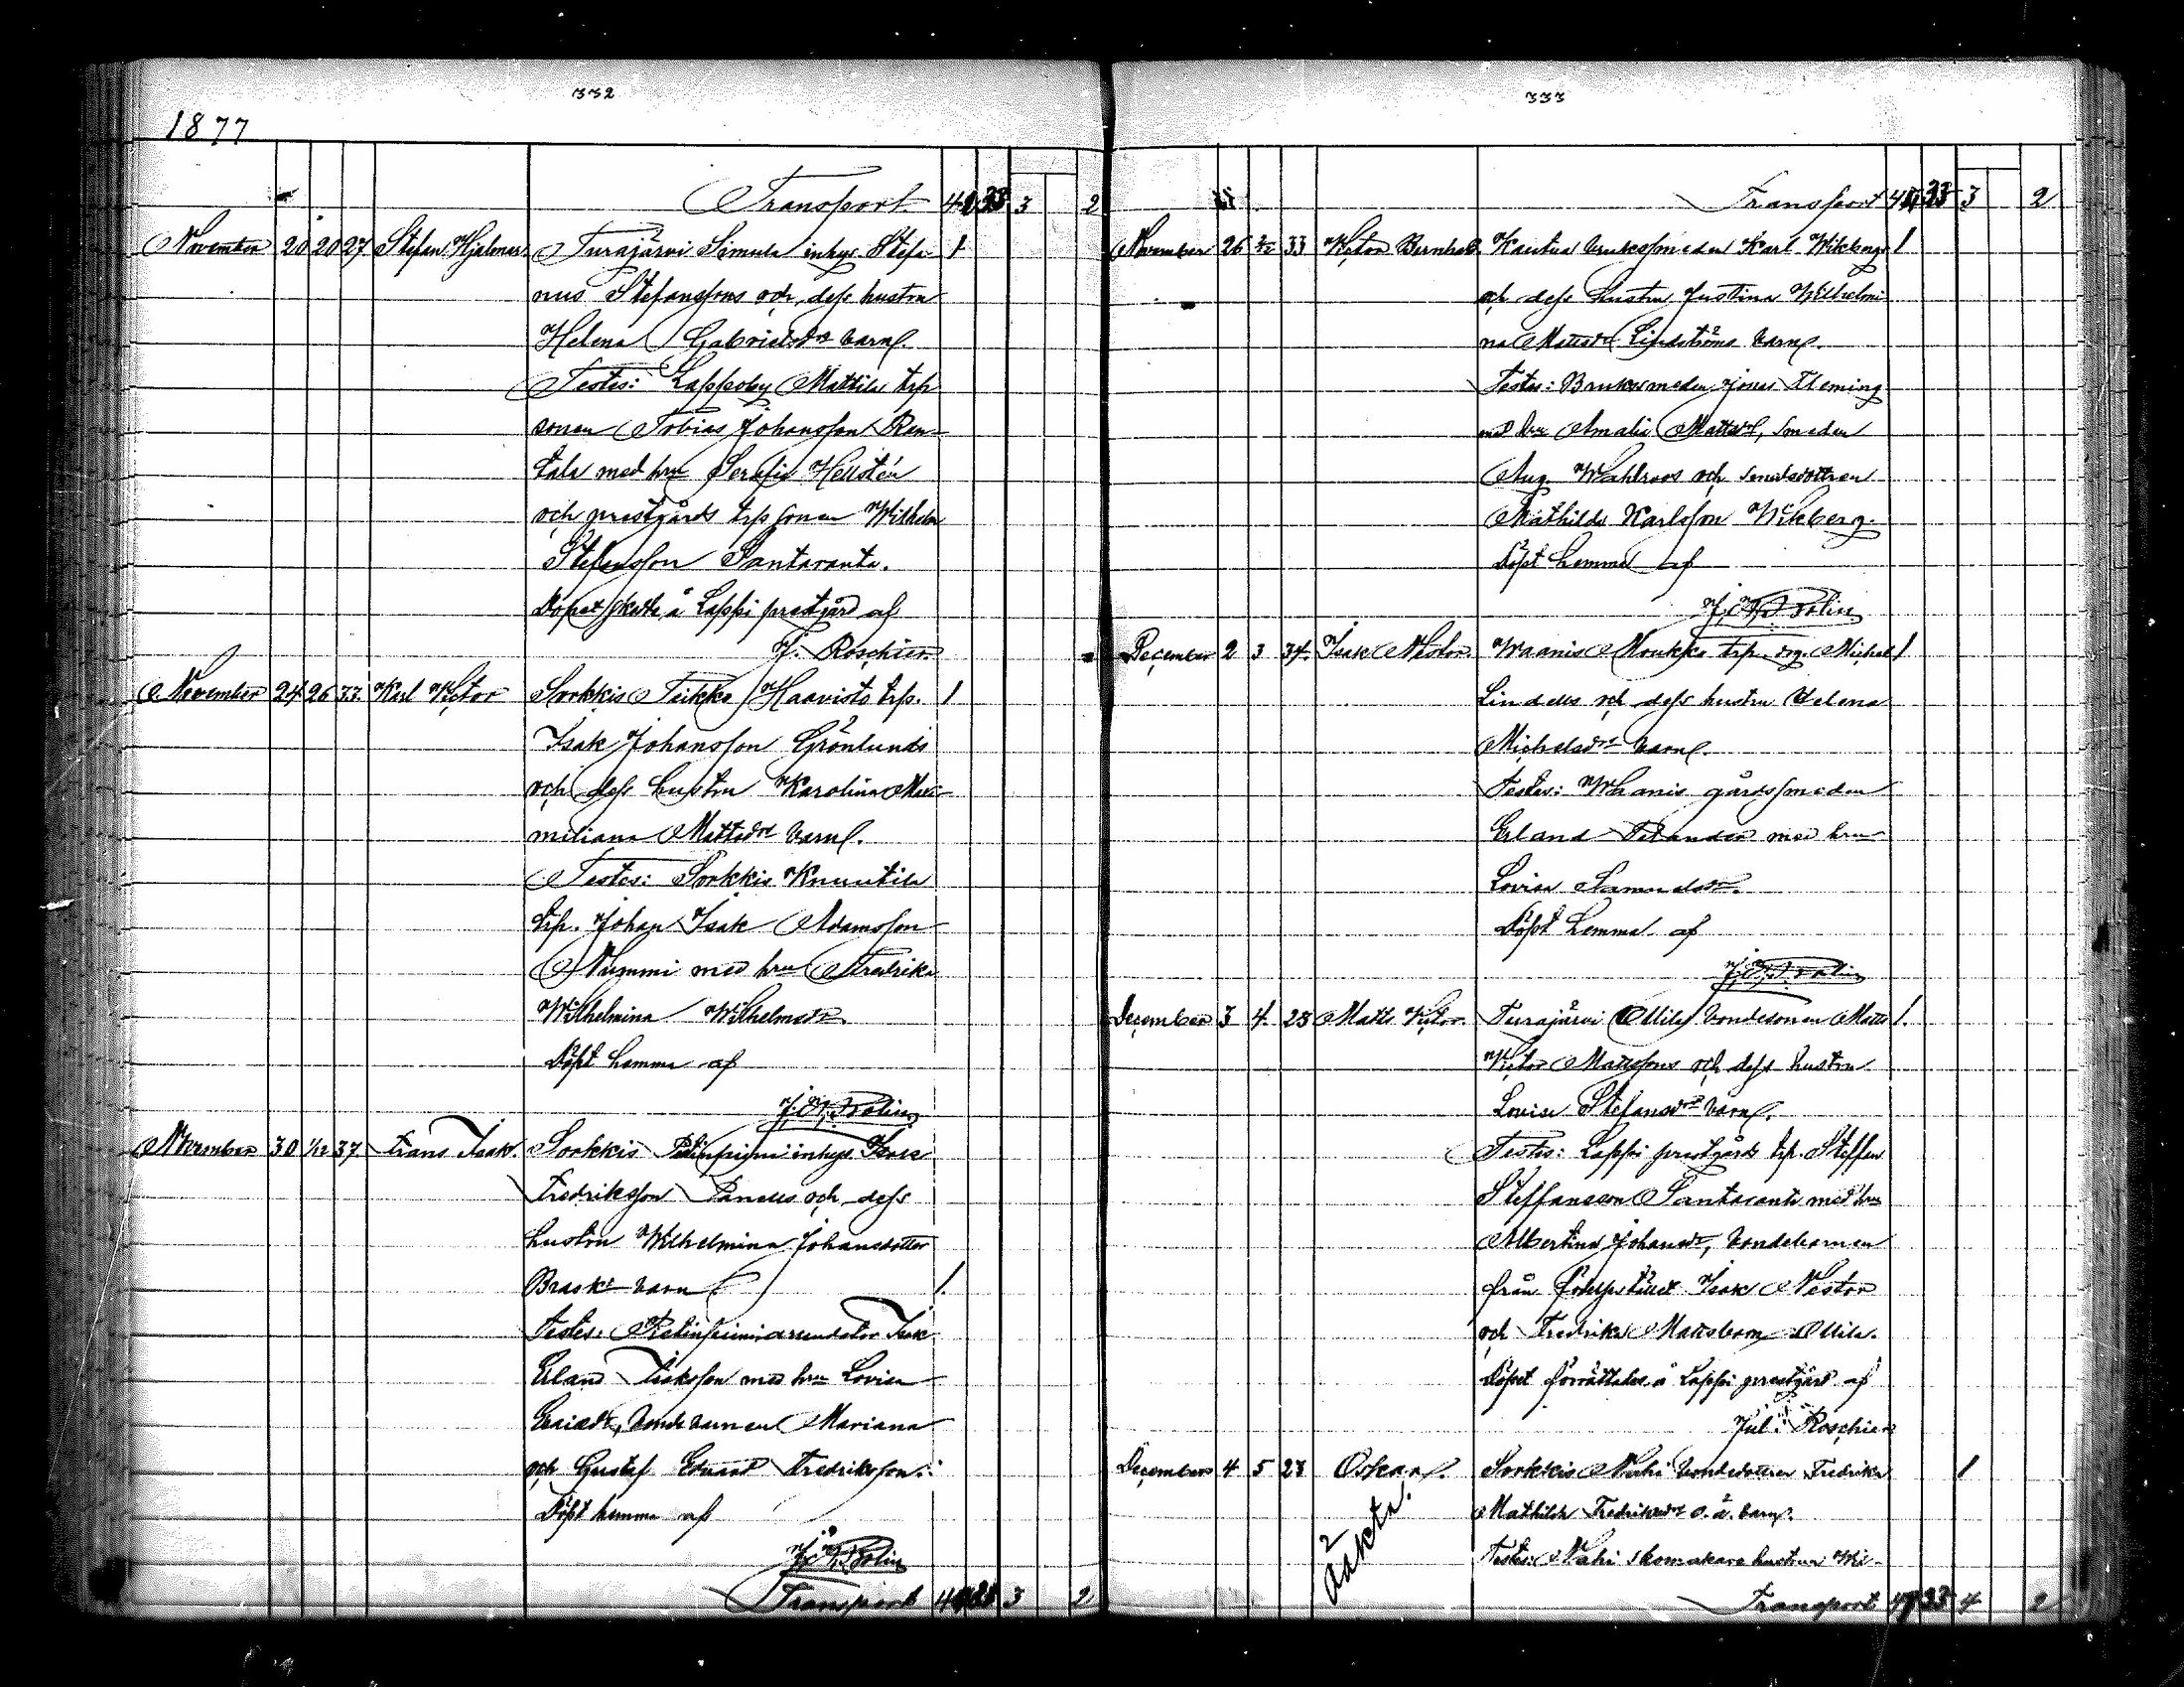 332
1877
Transport 41 33 3 2
November 20 20 27 Stefan Hjalmar Turajärvi Simula inhys. Stefa- 1
nus Stefanssons och dess hustru
Helena Gabrielsdrs barn.
Testes: Lappoby Mattila trp
sonen Tobias Johansson Ran-
tala med hru Serafia Hellstén
och prestgårds trp sonen Wilhelm
Stefansson Santaranta.
Döpet skedde å Lappi prestgård af
J. Roschier
November 24 26 33 Karl Victor Sorkkis Teikko Haavisto trp. 1
Isak Johansson Grönlunds
och dess hustru Karolina Maxi-
miliana Mattsdrs barn.
Testes: Sorkkis Knuutila
trp. Johan Isak Adamsson
Nummi med hru Fredrika
Wilhelmina Wilhelmsdr.
Döpt hemma af
November 30 1/12 37 Frans Isak Sorkkis inhys
Fredriksson och dess
hustru Wilhelmina Johansdotter
Brasks barn 1.
Testes: arrendator Isak
Erland Isaksson med hru Lovisa
bondebarnen Mariana
och Gustaf Eduard Fredriksson.
Döpt hemma af
Transport 3 2
333
Transport 33 3 2
November 26 2/12 33 Victor Bernhard Kauttua brukssmeden Karl Wikbergs 1
och dess hustru Justina Wilhelmi
na Mattsdr Lindströms barn.
Testes: Bruksmeden Jonas Fleming
med hru Amalia Mattsdr, smeden
Aug. Wahlroos och smedsdottren
Mathilda Karlsson Wikberg.
Döpt hemma af
December 2 3 34 Isak Nestor Waanis Noukka trp. Michel 1
Lindells och dess hustru Helena
Michelsdrs barn.
Testes: Waanis gårdssmeden
Erland med hru
Lovisa Samuelsdr.
Döpt hemma af
December 3 4 28 Matts Victor. Turajärvi Ollila bondesonen Matts 1.
Victor Mattssons och dess hustru
Lovisa Stefansdrs barn.
Testes: Lappi prestgårds trp. Steffan
Steffansson Santaranta med hru
Albertina Johansdr, bondebarnen
från Isak Nestor
och Fredrika Mattsbarn Ollila.
Döpet förrättades å Lappi prestgård af
Jul. Roschier
December 4 5 23 Oskar. Sorkkis bondedottren Fredrika 1
oäkta.
Mathilda Fredriksdrs o. ä. barn.
Testes: skomakare hustrun Wi-
Transport 33 4 2